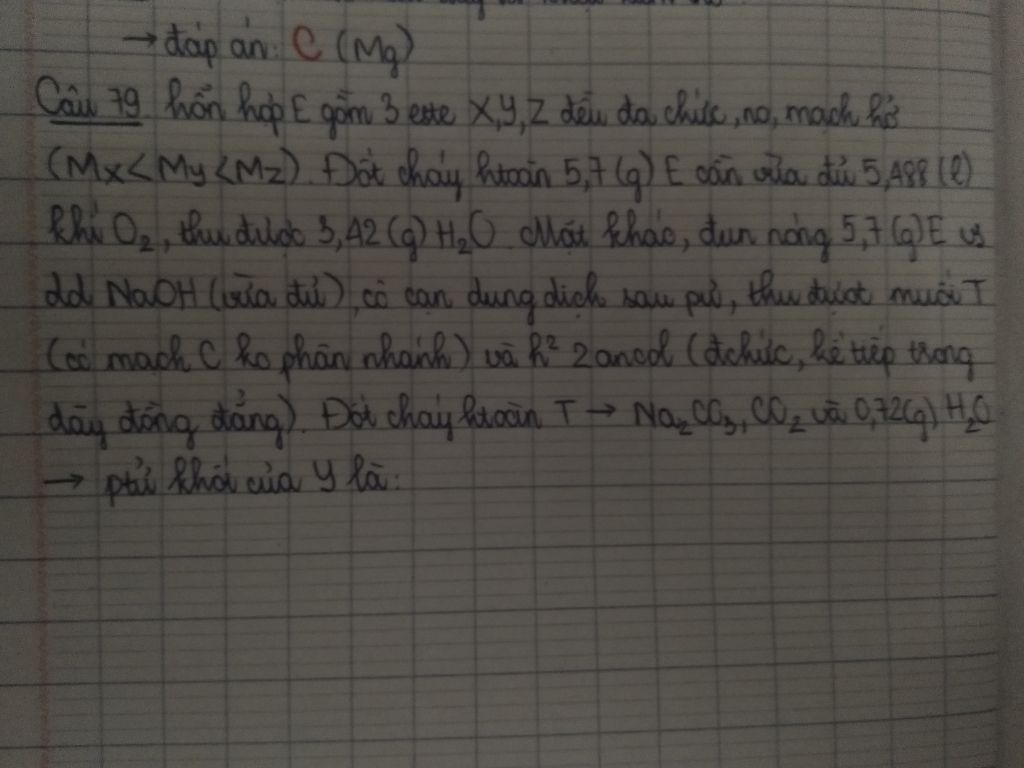 → đáp án: C (Mg)
Câu 79 hỗn hợp E gồm 3 este X,Y,Z đều đa chức, no, mạch hở
(Mx < My < Mz). Đốt cháy htoàn 5,7 (g) E cần vừa đủ 5,488 (l)
khí O₂, thu được 3,42 (g) H₂O. Mặt khác, đun nóng 5,7 (g) E vs
dd NaOH (vừa đủ), cô cạn dung dịch sau pứ, thu được muối T
(có mạch C ko phân nhánh) và h² 2 ancol (đchức, kế tiếp trong
dãy đồng đẳng). Đốt cháy htoàn T → Na₂CO₃, CO₂ và 0,72(g) H₂O
→ ptử khối của Y là: